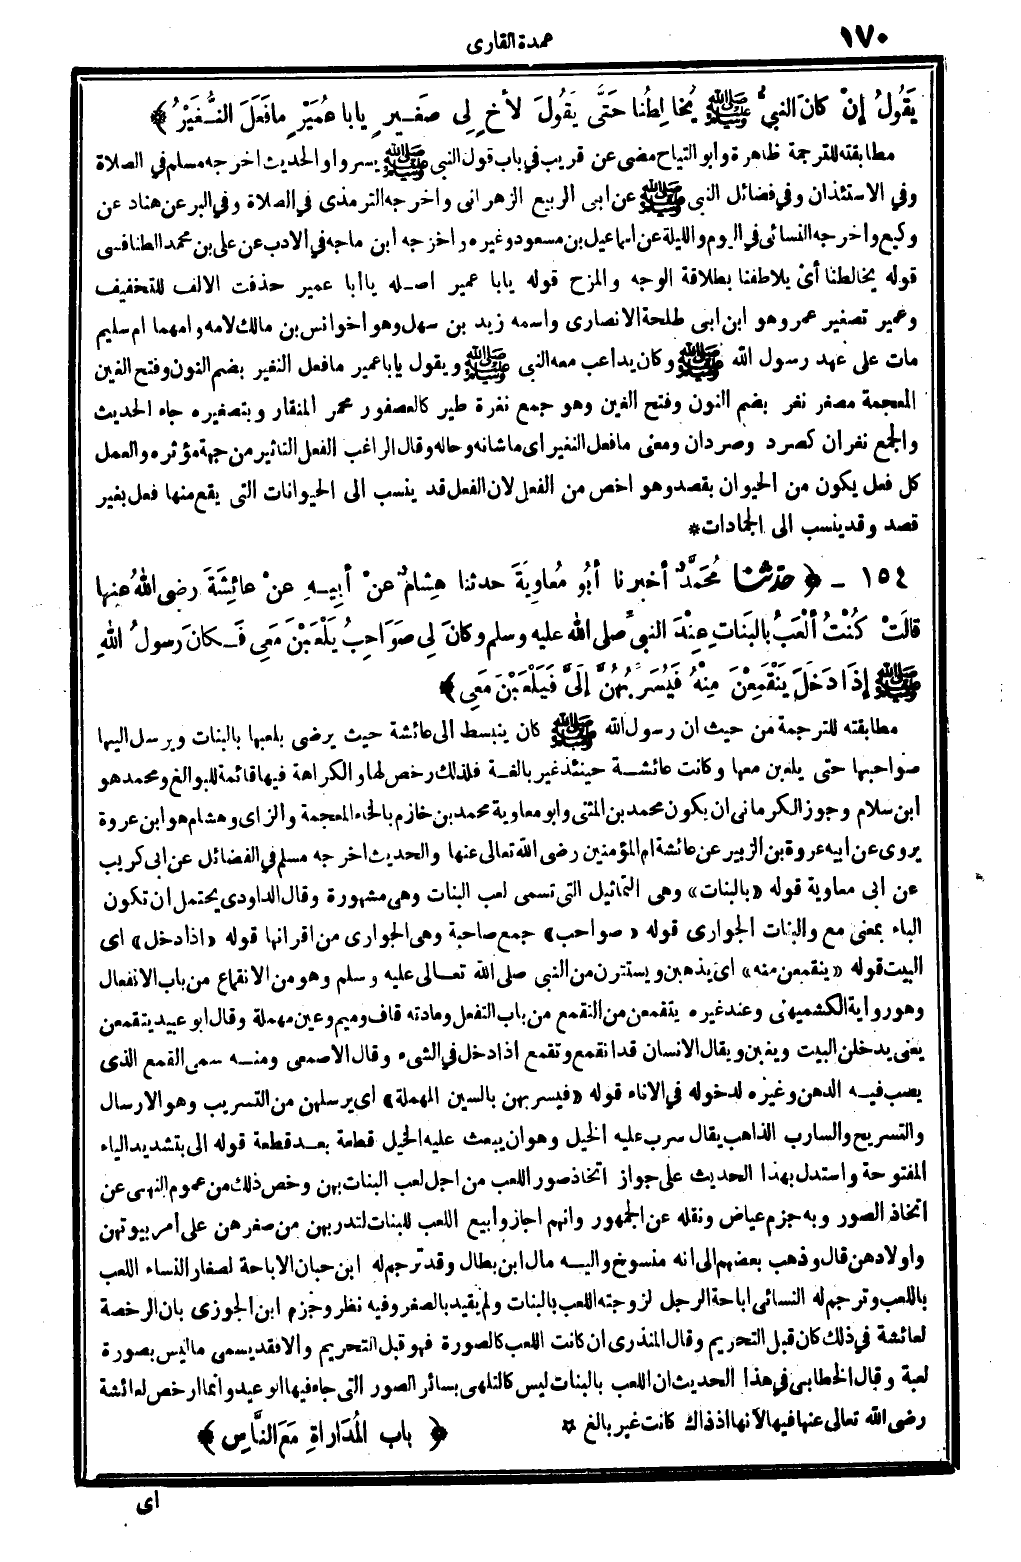 ١٧٠
عمدة القارى
يَقُولُ إنْ كانَ النبيُّ ﷺ يُخالِطُنا حَتَّى يَقُولَ لأخٍ لِى صَغيرٍ يا با عُمَيْرٍ ما فَعَلَ النُّغَيْرُ ﴾
مطابقته للترجمة ظاهرة وابو التياح مضى عن قريب فى باب قول النبى ﷺ يسروا والحديث اخرجه مسلم فى الصلاة
وفى الاستئذان وفى فضائل النبى ﷺ عن ابى الربيع الزهرانى واخرجه الترمذى فى الصلاة وفى البر عن هناد عن
وكيع واخرجه النسائى فى اليوم والليلة عن اسماعيل بن مسعود وغيره واخرجه ابن ماجه فى الادب عن على بن محمد الطنافسى
قوله يخالطنا أىْ يلاطفنا بطلاقة الوجه والمزح قوله يابا عمير اصله ياأبا عمير حذفت الالف للتخفيف
وعمير تصغير عمر وهو ابن ابى طلحة الانصارى واسمه زيد بن سهل وهو اخو انس بن مالك لامه وامهما ام سليم
مات على عهد رسول الله ﷺ وكان يداعب معه النبى ﷺ ويقول ياباعمير مافعل النغير بضم النون وفتح الغين
المعجمة مصغر نغر بضم النون وفتح الغين وهو جمع نغرة طير كالعصفور محمر المنقار وبتصغيره جاء الحديث
والجمع نغران كصرد وصردان ومعنى مافعل النغير اى ماشانه وحاله وقال الراغب الفعل التاثير من جهة مؤثره والعمل
كل فعل يكون من الحيوان بقصد وهو اخص من الفعل لان الفعل قد ينسب الى الحيوانات التى يقع منها فعل بغير
قصد وقد ينسب الى الجمادات*
١٥٤ - ﴿ حدثنا مُحَمَّدٌ أخبرنا أبُو مُعاوِيَةَ حدثنا هِشامٌ عنْ أبِيهِ عنْ عائِشَةَ رضى اللهُ عنها
قالَتْ كُنْتُ ألْعَبُ بالبَناتِ عِنْدَ النبيِّ صلى الله عليه وسلم وكانَ لِى صَوَاحِبُ يَلْعَبْنَ مَعِى فَكانَ رَسولُ اللهِ
ﷺ إذَا دَخَلَ يَنْقَمِعْنَ مِنْهُ فَيُسَرِّبُهُنَّ إلَىَّ فَيَلْعَبْنَ مَعِى ﴾
مطابقته للترجمة من حيث ان رسول الله ﷺ كان ينبسط الى عائشة حيث يرضى بلعبها بالبنات ويرسل اليها
صواحبها حتى يلعبن معها وكانت عائشة حينئذ غير بالغة فلذلك رخص لها والكراهة فيها قائمة للبوالغ ومحمد هو
ابن سلام وجوز الكرمانى ان يكون محمد بن المثنى وابو معاوية محمد بن خازم بالخاء المعجمة والزاى وهشام هو ابن عروة
يروى عن ابيه عروة بن الزبير عن عائشة ام المؤمنين رضى الله تعالى عنها والحديث اخرجه مسلم فى الفضائل عن ابى كريب
عن ابى معاوية قوله «بالبنات» وهى التماثيل التى تسمى لعب البنات وهى مشهورة وقال الداودى يحتمل ان تكون
الباء بمعنى مع والبنات الجوارى قوله «صواحب» جمع صاحبة وهى الجوارى من اقرانها قوله «اذا دخل» اى
البيت قوله «ينقمعن منه» اى يذهبن ويستترن من النبى صلى الله تعالى عليه وسلم وهو من الانقماع من باب الانفعال
وهو رواية الكشميهنى وعند غيره يتقمعن من التقمع من باب التفعل ومادته قاف وميم وعين مهملة وقال ابو عبيد يتقمعن
يعنى يدخلن البيت ويغبن ويقال الانسان قد انقمع وتقمع اذا دخل فى الشىء وقال الاصمعى ومنه سمى القمع الذى
يصب فيه الدهن وغيره لدخوله فى الاناء قوله «فيسربهن بالسين المهملة» اى يرسلهن من التسريب وهو الارسال
والتسريح والسارب الذاهب يقال سرب عليه الخيل وهو ان يبعث عليه الخيل قطعة بعد قطعة قوله الى بتشديد الياء
المفتوحة واستدل بهذا الحديث على جواز اتخاذ صور اللعب من اجل لعب البنات بهن وخص ذلك من عموم النهى عن
اتخاذ الصور وبه جزم عياض ونقله عن الجمهور وانهم اجازوا بيع اللعب للبنات لتدريبهن من صغرهن على أمر بيوتهن
واولادهن قال وذهب بعضهم الى انه منسوخ واليه مال ابن بطال وقد ترجم له ابن حبان الاباحة لصغار النساء اللعب
باللعب وترجم له النسائى اباحة الرجل لزوجته اللعب بالبنات ولم يقيد بالصغر وفيه نظر وجزم ابن الجوزى بان الرخصة
لعائشة فى ذلك كان قبل التحريم وقال المنذرى ان كانت اللعب كالصورة فهو قبل التحريم والا فقد يسمى ما ليس بصورة
لعبة وقال الخطابى فى هذا الحديث ان اللعب بالبنات ليس كالتلهى بسائر الصور التى جاء فيها الوعيد وانما ارخص لعائشة
رضى الله تعالى عنها فيها لأنها اذ ذاك كانت غير بالغ *
﴿ باب المُدَاراةِ مَعَ النَّاسِ ﴾
اى